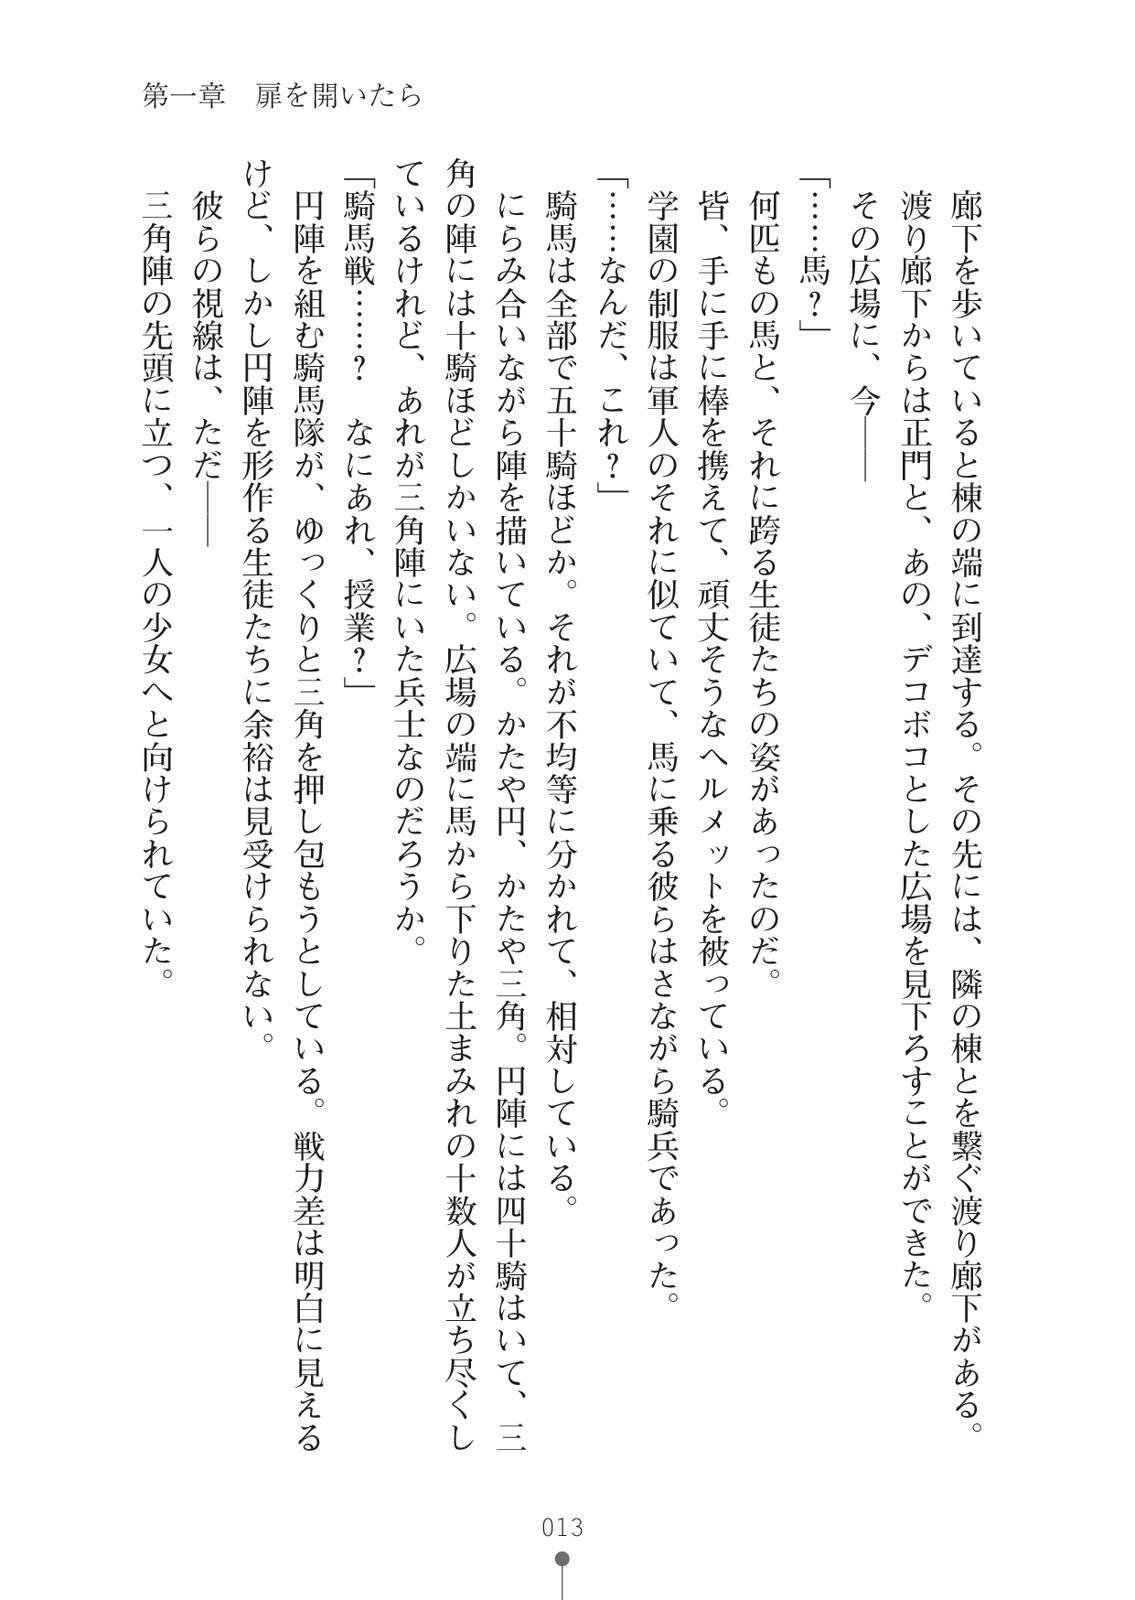 第一章　扉を開いたら
廊下を歩いていると棟の端に到達する。その先には、隣の棟とを繋ぐ渡り廊下がある。
渡り廊下からは正門と、あの、デコボコとした広場を見下ろすことができた。
その広場に、今――
「……馬？」
何匹もの馬と、それに跨る生徒たちの姿があったのだ。
皆、手に手に棒を携えて、頑丈そうなヘルメットを被っている。
学園の制服は軍人のそれに似ていて、馬に乗る彼らはさながら騎兵であった。
「……なんだ、これ？」
騎馬は全部で五十騎ほどか。それが不均等に分かれて、相対している。
にらみ合いながら陣を描いている。かたや円、かたや三角。円陣には四十騎はいて、三
角の陣には十騎ほどしかいない。広場の端に馬から下りた土まみれの十数人が立ち尽くし
ているけれど、あれが三角陣にいた兵士なのだろうか。
「騎馬戦……？　なにあれ、授業？」
円陣を組む騎馬隊が、ゆっくりと三角を押し包もうとしている。戦力差は明白に見える
けど、しかし円陣を形作る生徒たちに余裕は見受けられない。
彼らの視線は、ただ――
三角陣の先頭に立つ、一人の少女へと向けられていた。
013